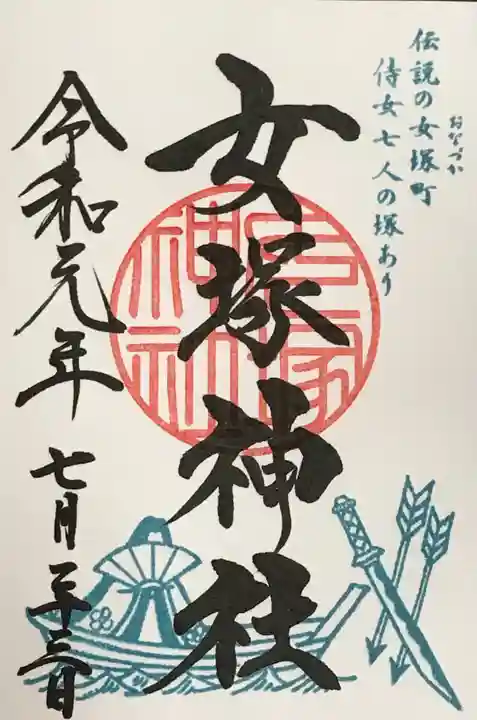 伝説の女塚町
おなづか
侍女七人の塚あり
女塚神社
女塚神社
令和元年七月二十三日